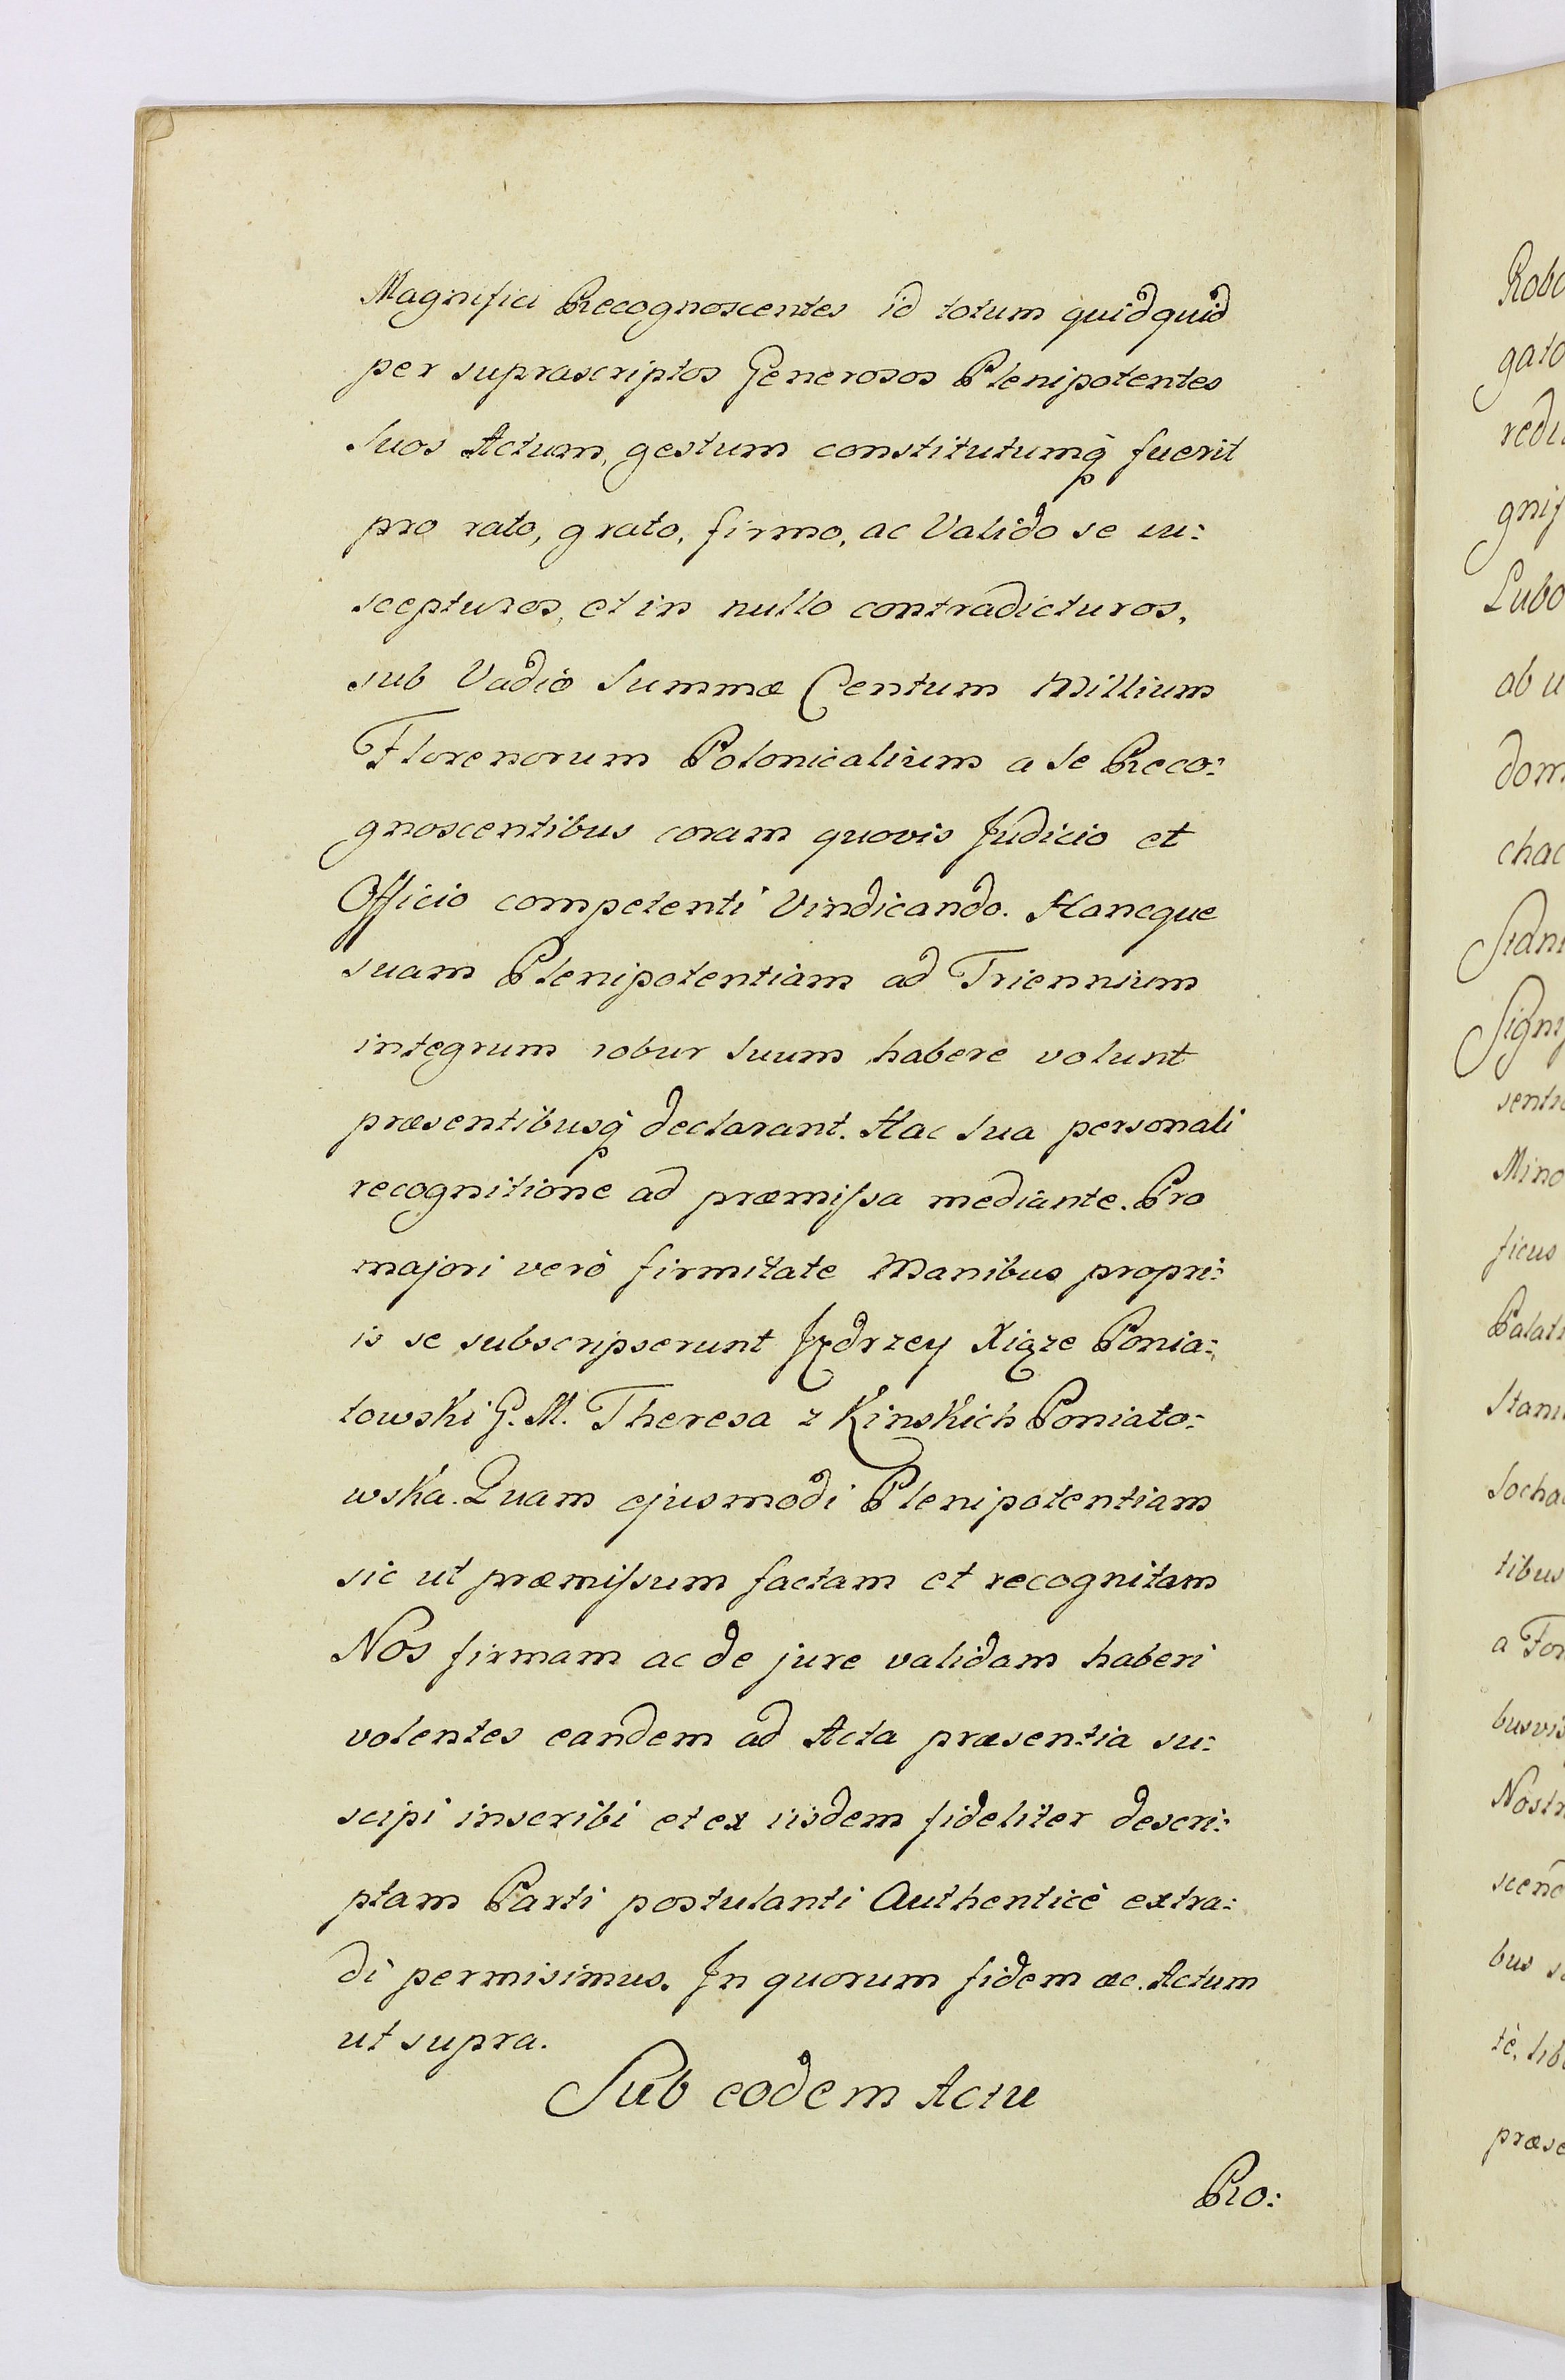 Magnifici Recognoscentes id totum quidquid
per suprascriptos Generosos Plenipotentes
Suos Actum, gestum constitutumq̀ fuerit
pro rato, grato, firmo, ac Valido se su:
scepturos, et in nullo contradicturos,
sub Vadio Summæ Centum Millium
Florenorum Polonicalium a Se Reco:
gnoscentibus coram quovis Judicio et
Officio competenti Vindicando. Hancque
suam Plenipotentiam ad Triennium
integrum robur Suum habere volunt
præsentibusq̀ declarant. Hac Sua personali
recognitione ad præmissa mediante. Pro
majori verò firmitate Manibus propri:
is se subscripserunt Jędrzey Xiąze Ponia:
towski G. M. Theresa z Kinskich Poniato:
wska. Quam ejusmodi Plenipotentiam
sic ut præmissum factam et recognitam
Nos firmam ac de jure validam haberi
volentes eandem ad Acta præsentia su:
scipi inscribi et ex iisdem fideliter descri:
ptam Parti postulanti Authenticè extra:
di permisimus. In quorum fidem &c. Actum
ut supra.
Sub eodem Actu
Pro: